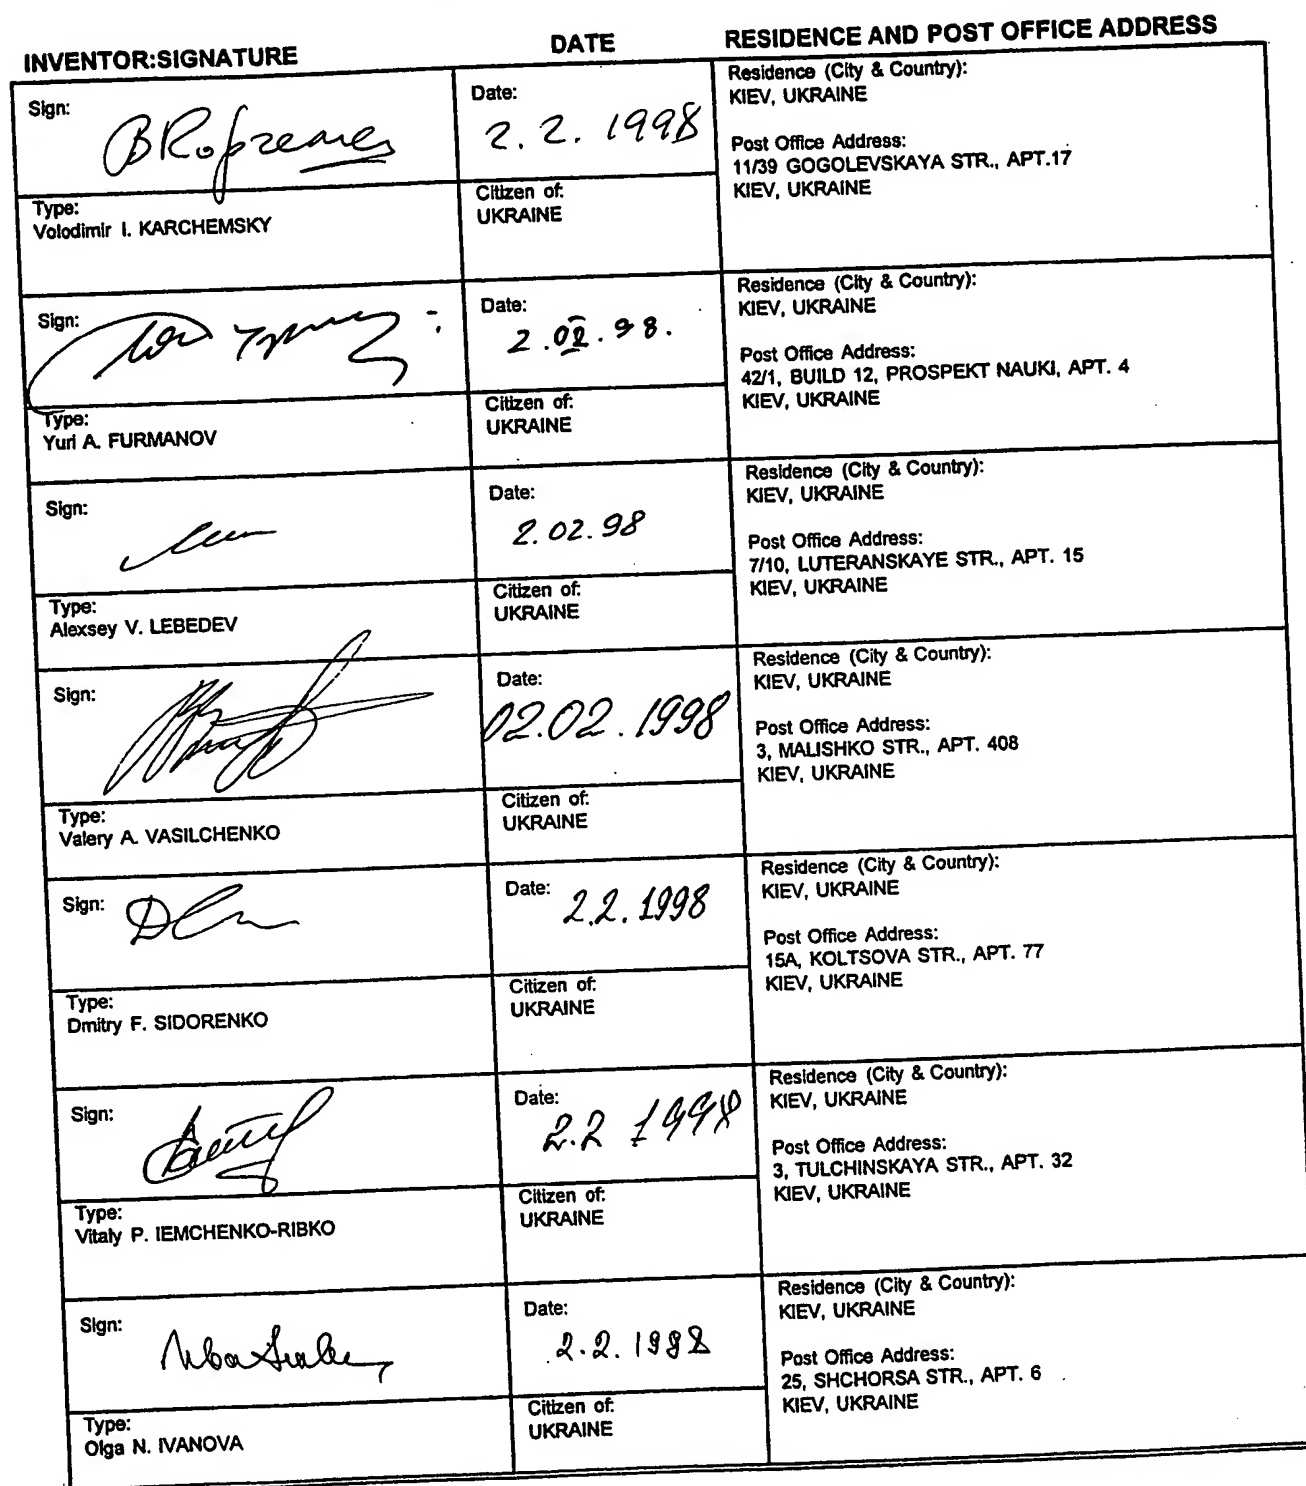 INVENTOR:SIGNATURE DATE RESIDENCE AND POST OFFICE ADDRESS
Sign:
Date:
2. 2. 1998
Residence (City & Country):
KIEV, UKRAINE
Post Office Address:
11/39 GOGOLEVSKAYA STR., APT.17
KIEV, UKRAINE
Type:
Volodimir I. KARCHEMSKY
Citizen of:
UKRAINE
Sign:
Date:
2.02.98.
Residence (City & Country):
KIEV, UKRAINE
Post Office Address:
42/1, BUILD 12, PROSPEKT NAUKI, APT. 4
KIEV, UKRAINE
Type:
Yuri A. FURMANOV
Citizen of:
UKRAINE
Sign:
Date:
2.02.98
Residence (City & Country):
KIEV, UKRAINE
Post Office Address:
7/10, LUTERANSKAYE STR., APT. 15
KIEV, UKRAINE
Type:
Alexsey V. LEBEDEV
Citizen of:
UKRAINE
Sign:
Date:
02.02.1998
Residence (City & Country):
KIEV, UKRAINE
Post Office Address:
3, MALISHKO STR., APT. 408
KIEV, UKRAINE
Type:
Valery A. VASILCHENKO
Citizen of:
UKRAINE
Sign:
Date:
2.2.1998
Residence (City & Country):
KIEV, UKRAINE
Post Office Address:
15A, KOLTSOVA STR., APT. 77
KIEV, UKRAINE
Type:
Dmitry F. SIDORENKO
Citizen of:
UKRAINE
Sign:
Date:
2.2 1998
Residence (City & Country):
KIEV, UKRAINE
Post Office Address:
3, TULCHINSKAYA STR., APT. 32
KIEV, UKRAINE
Type:
Vitaly P. IEMCHENKO-RIBKO
Citizen of:
UKRAINE
Sign:
Date:
2.2.1998
Residence (City & Country):
KIEV, UKRAINE
Post Office Address:
25, SHCHORSA STR., APT. 6
KIEV, UKRAINE
Type:
Olga N. IVANOVA
Citizen of:
UKRAINE